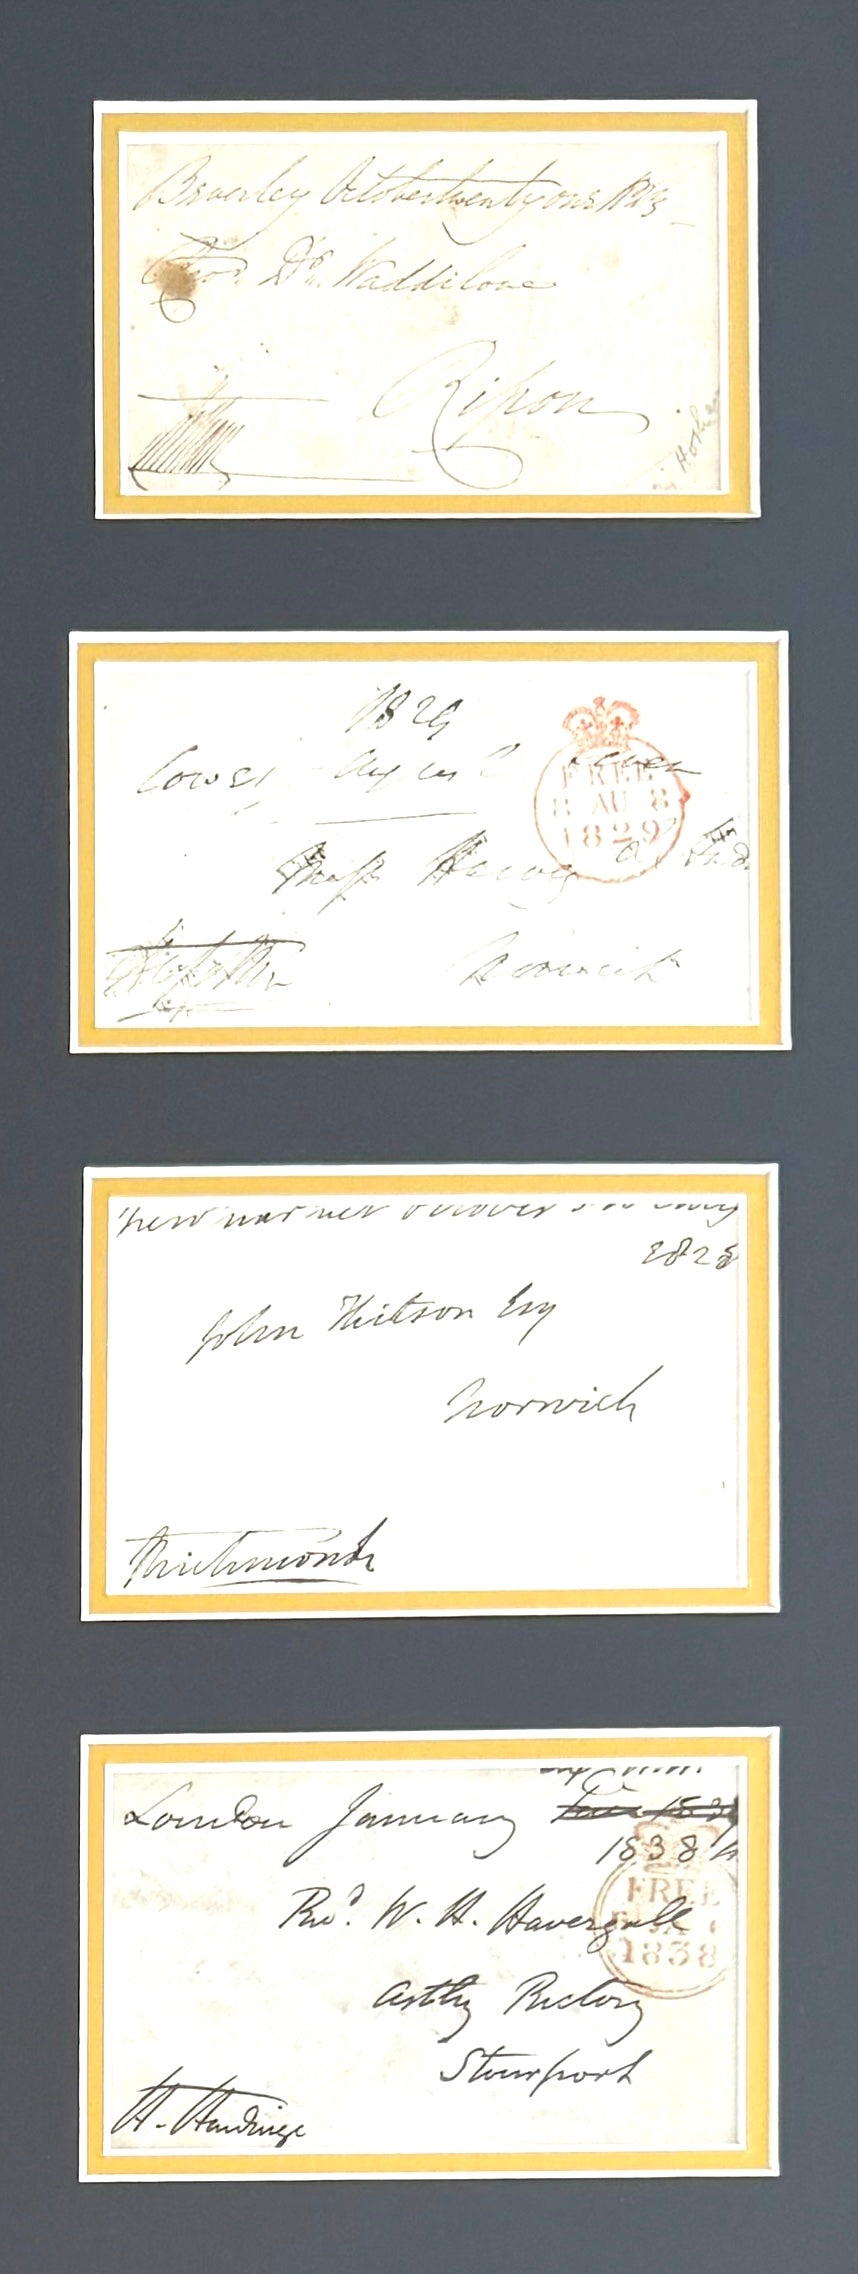 Beverley October twenty one 1823
Revd. Dr. Waddilove
Ripon
1829
Cowes August Seven
FREE
8 AU 8
1829
Miss Harvey
Norwich
New market October
1828
John Kitson Esq
Norwich
Richmond
London January
1838
FREE
1838
Revd. W. H. Havergall
Astley Rectory
Stourport
H. Hardinge